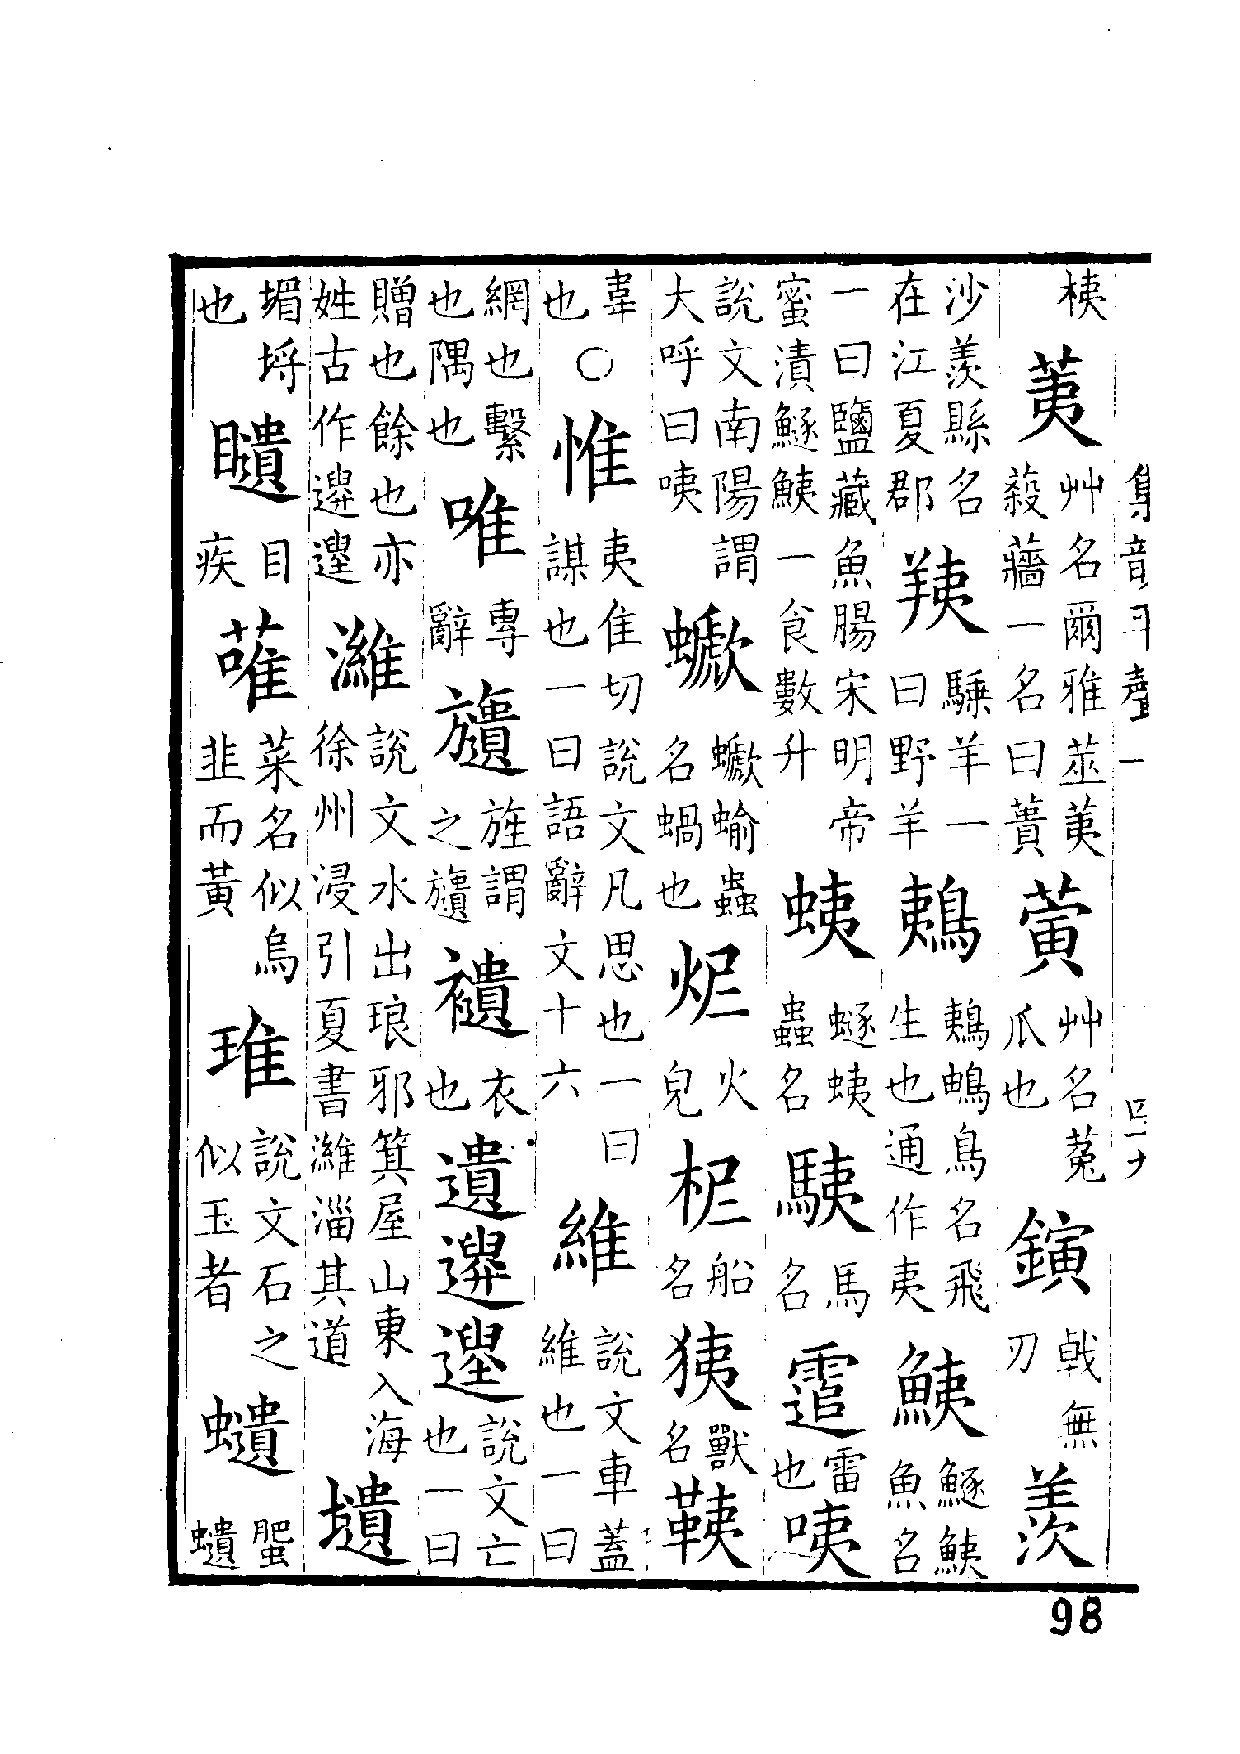 桋荑艸名爾雅莁荑蔱蘠一名曰蕢䔬艸名菟瓜也鏔戟無刃羨
沙羡縣名在江夏郡羠騬羊一曰野羊鶇鵜鳥名飛生也通作夷鮧鱁鮧魚名
一曰鹽藏魚腸宋明帝蜜漬鱁鮧一食數升蛦螔蛦蟲名駛馬名䨓雷也咦
說文南陽謂大呼曰咦蠍蠍蝓蟲名蝸也㶭火皃柅船名狋獸名䩟
韋也○惟夷隹切說文凡思也一曰謀也一曰語辭文十六維說文車蓋維也一曰
網也繫也隅也唯專辭旞旌謂之旞䙡衣也遺𨘷𨗮說文亡也一曰
贈也餘也亦姓古作𨘷𨗮濰說文水出琅邪箕屋山東入海徐州浸引夏書濰淄其道壝
堳埒也瞶目疾蓶菜名似烏韭而黃琟說文石之似玉者蠵蟹蠵
集韻平聲一
四十九
98